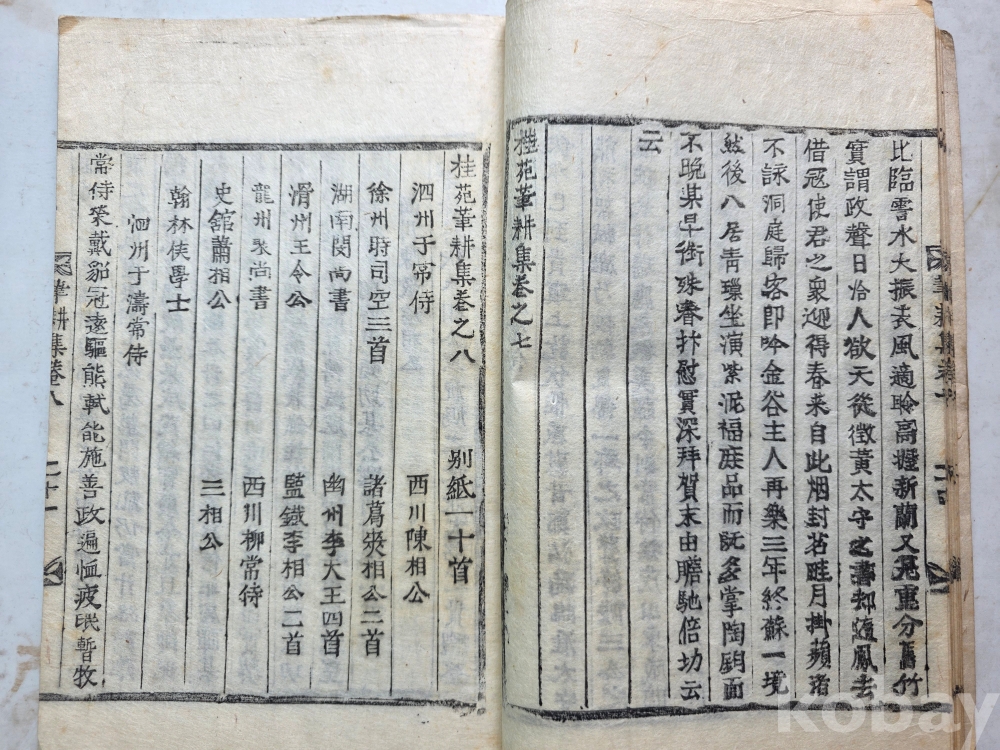 比臨霅水大振表風適聆高攦新蘭又見重分舊竹
實謂政聲日洽人欲天從徵黃太守之書却復鳳去
借冦使君之衆迎得春来自此烟封茗畦月掛蘋渚
不詠洞庭歸客即吟金谷主人再樂三年終蘇一境
然後入居青瑣坐演紫泥福庭品而旣多掌陶鈞而
不晩某早銜殊眷抃慰實深拜賀末由瞻馳倍切云
云
桂苑筆耕集巻之七
桂苑筆耕集巻之八 別紙一十首
泗州于常侍 西川陳相公
徐州時司空三首 諸葛爽相公二首
湖南閔尚書 幽州李大王四首
滑州王令公 監鐵李相公二首
龍州裴尚書 西川柳常侍
史舘蕭相公 三相公
翰林侯學士
泗州于濤常侍
常侍榮戴貂冠遠驅熊軾能施善政遍恤疲氓暫牧
筆耕集巻八 二十一
kobay